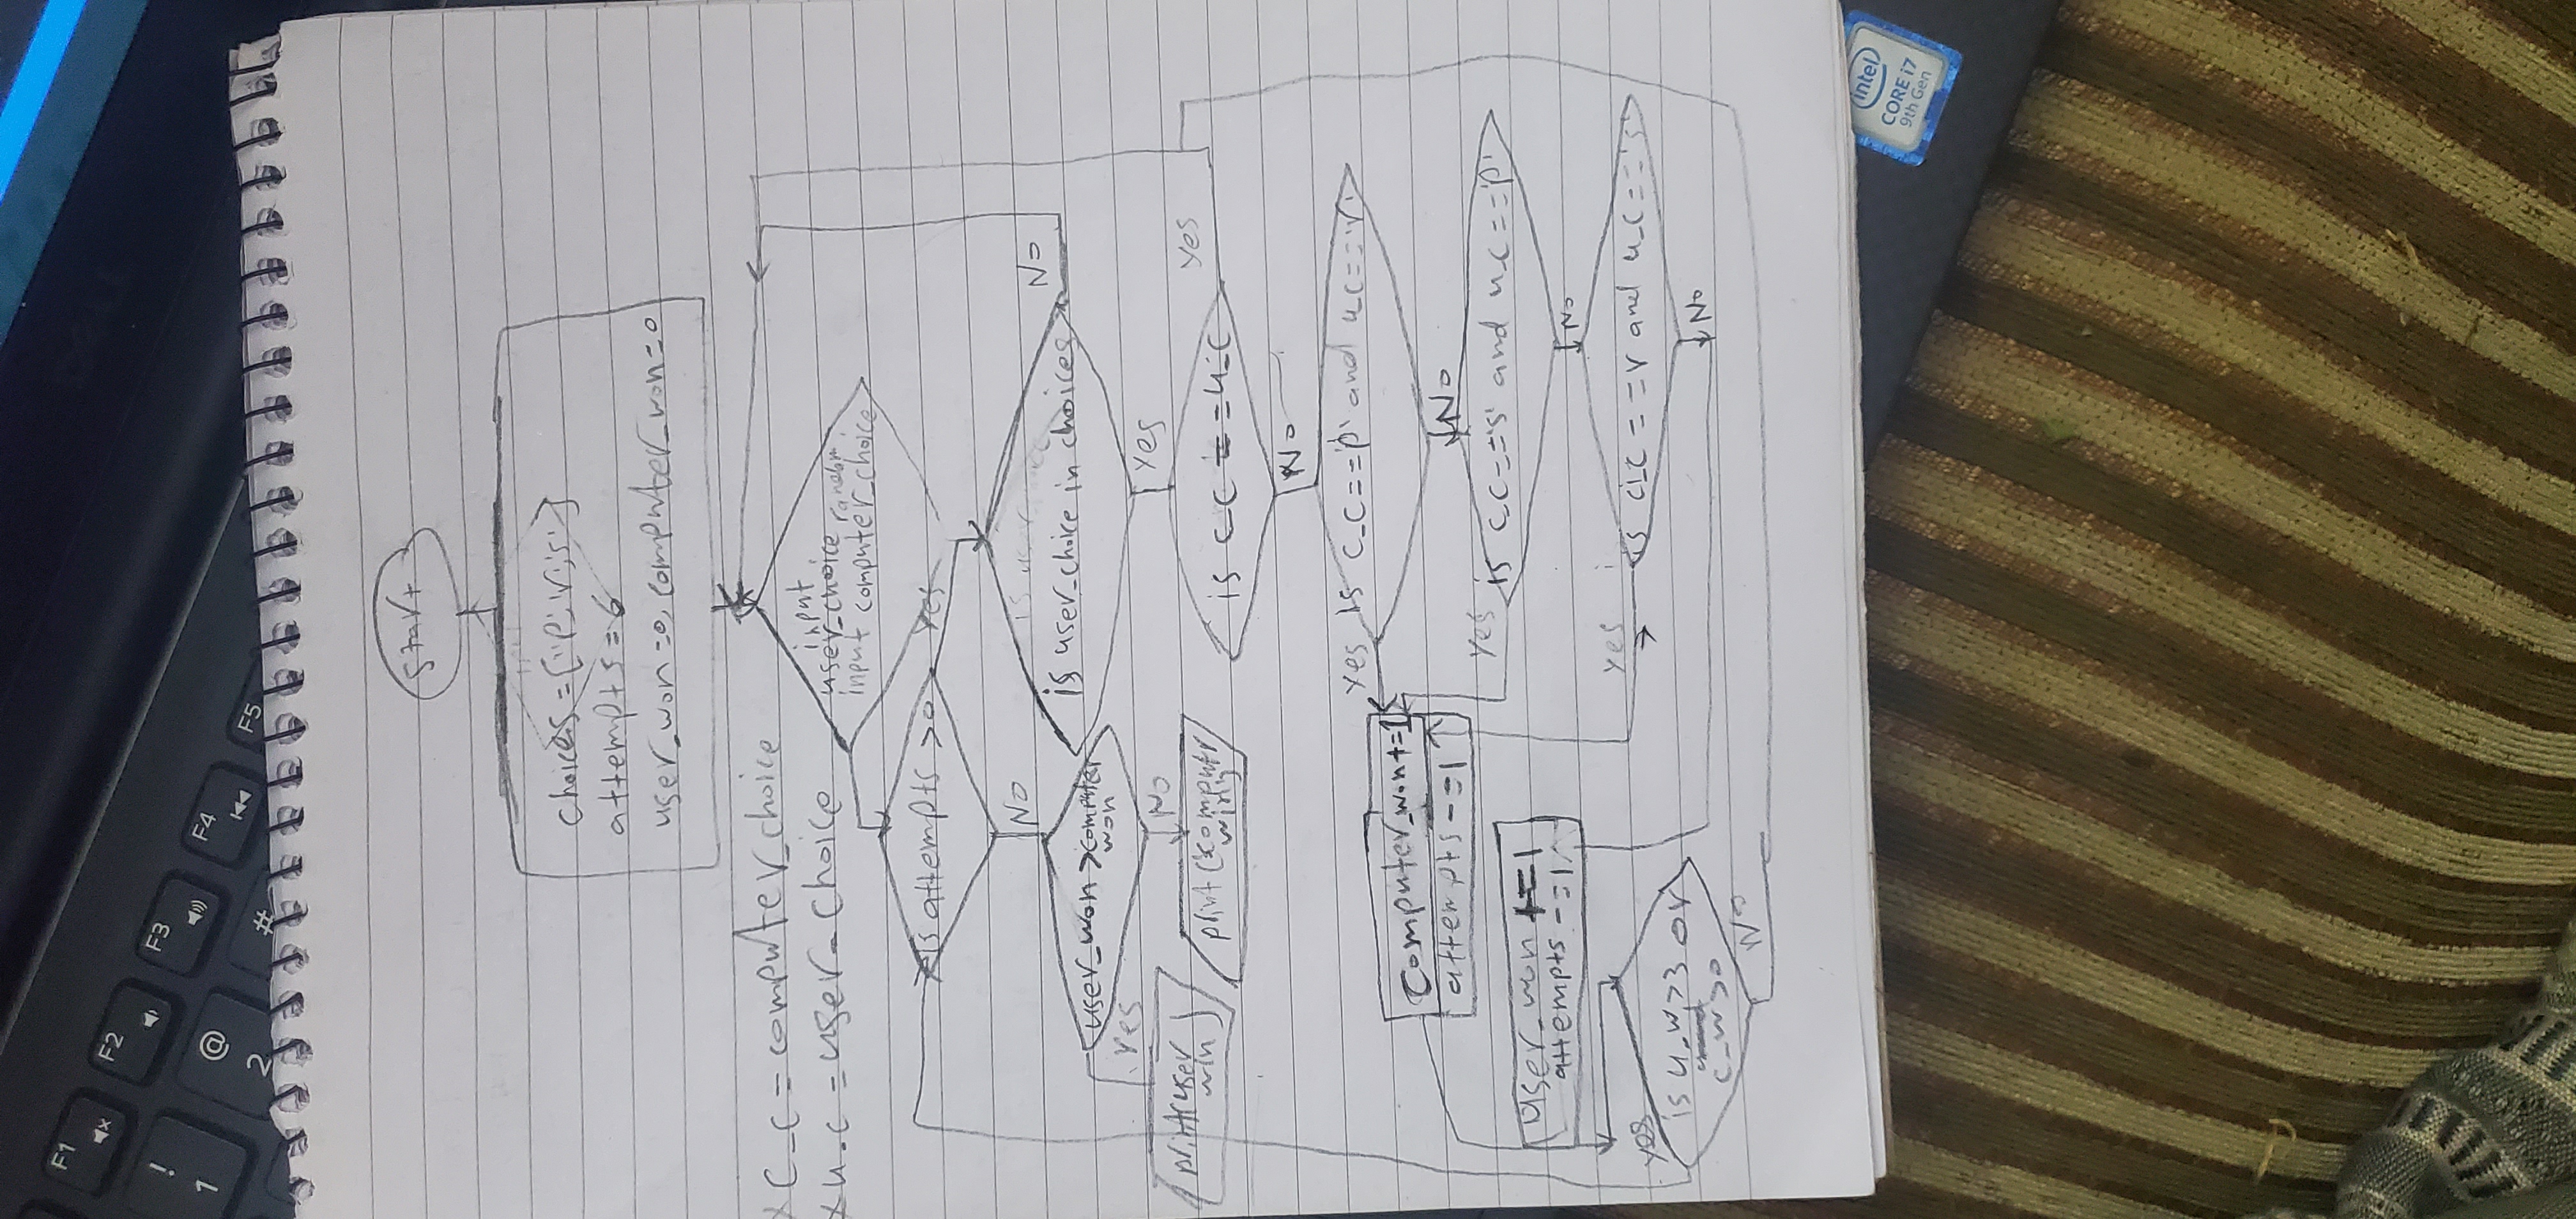 F1
F2
F3
F4
F5
!
1
@
2
#
start
choices = ['p', 'r', 's']
attempts = 6
user_won = 0, computer_won = 0
x c_c = computer_choice
x u.c = user_choice
input
user_choice random
input computer_choice
is attempts > 0
Yes
No
is user_choice in choices
No
user_won > computer
won
Yes
Yes
No
print(user
win)
print(computr
win)
is c_c == u_c
yes
No
yes is c_c == 'p' and u_c == 'r'
Computer_won += 1
attempts -= 1
No
Yes is c_c == 's' and u_c == 'p'
user_won += 1
attempts -= 1
No
yes is c_c == r and u_c == 's'
yes
is u_w > 3 or
c_w > 0
No
No
intel
CORE i7
9th Gen